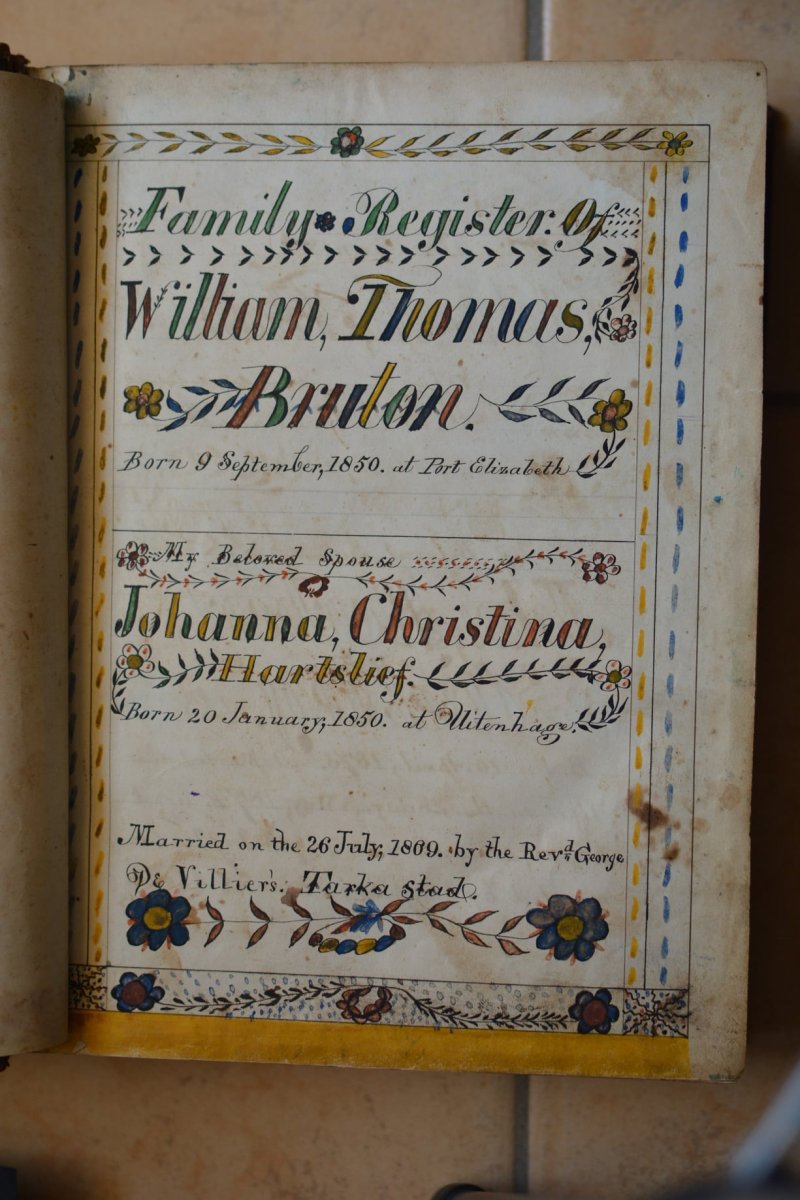 Family Register. Of
William, Thomas,
Bruton.
Born 9 September, 1850. at Port Elizabeth
My Beloved Spouse
Johanna, Christina,
Hartslief.
Born 20 January, 1850. at Uitenhage.
Married on the 26 July, 1869. by the Revd. George
De Villier's. Tarka stad.